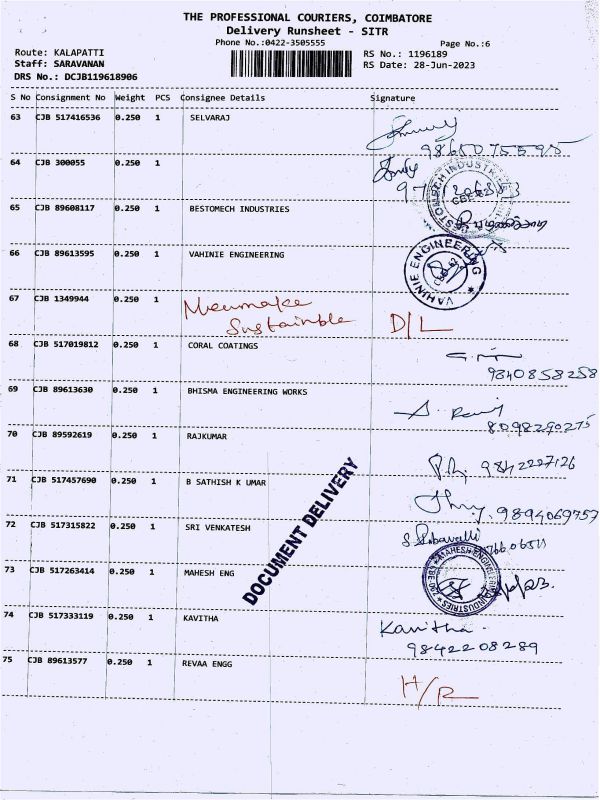 THE PROFESSIONAL COURIERS, COIMBATORE
Delivery Runsheet - SITR
Phone No.:0422-3505555
Page No.:6
Route: KALAPATTI
RS No.: 1196189
Staff: SARAVANAN
RS Date: 28-Jun-2023
DRS No.: DCJB119618906
S No Consignment No Weight PCS Consignee Details Signature
63 CJB 517416536 0.250 1 SELVARAJ
9865075595
64 CJB 300055 0.250 1
65 CJB 89608117 0.250 1 BESTOMECH INDUSTRIES
BESTOMECH INDUSTRIES
66 CJB 89613595 0.250 1 VAHINIE ENGINEERING
VAHINIE ENGINEERING
67 CJB 1349944 0.250 1
Sustainble D/L
68 CJB 517019812 0.250 1 CORAL COATINGS
9840858258
69 CJB 89613630 0.250 1 BHISMA ENGINEERING WORKS
8098290275
70 CJB 89592619 0.250 1 RAJKUMAR
9842227126
71 CJB 517457690 0.250 1 B SATHISH K UMAR
9894069757
72 CJB 517315822 0.250 1 SRI VENKATESH
73 CJB 517263414 0.250 1 MAHESH ENG
DOCUMENT DELIVERY
74 CJB 517333119 0.250 1 KAVITHA Kavitha
9842208289
75 CJB 89613577 0.250 1 REVAA ENGG
H/R